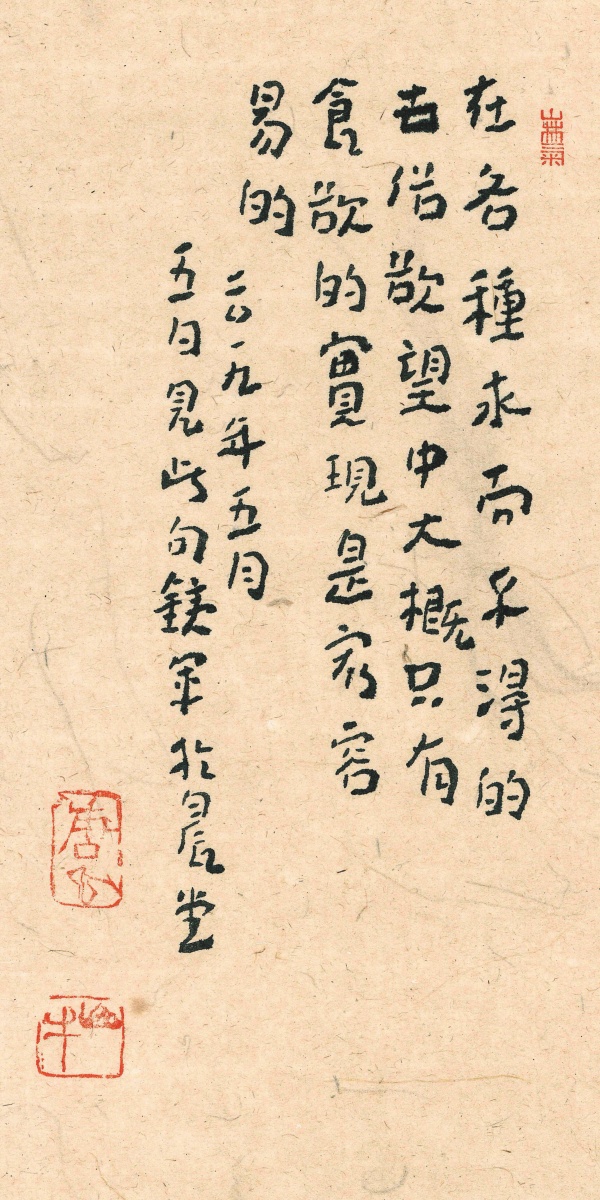 在各種求而不得的
世俗欲望中大概只有
食欲的實現是最容
易的
二〇一九年五月
五日見此句銕軍於晨堂